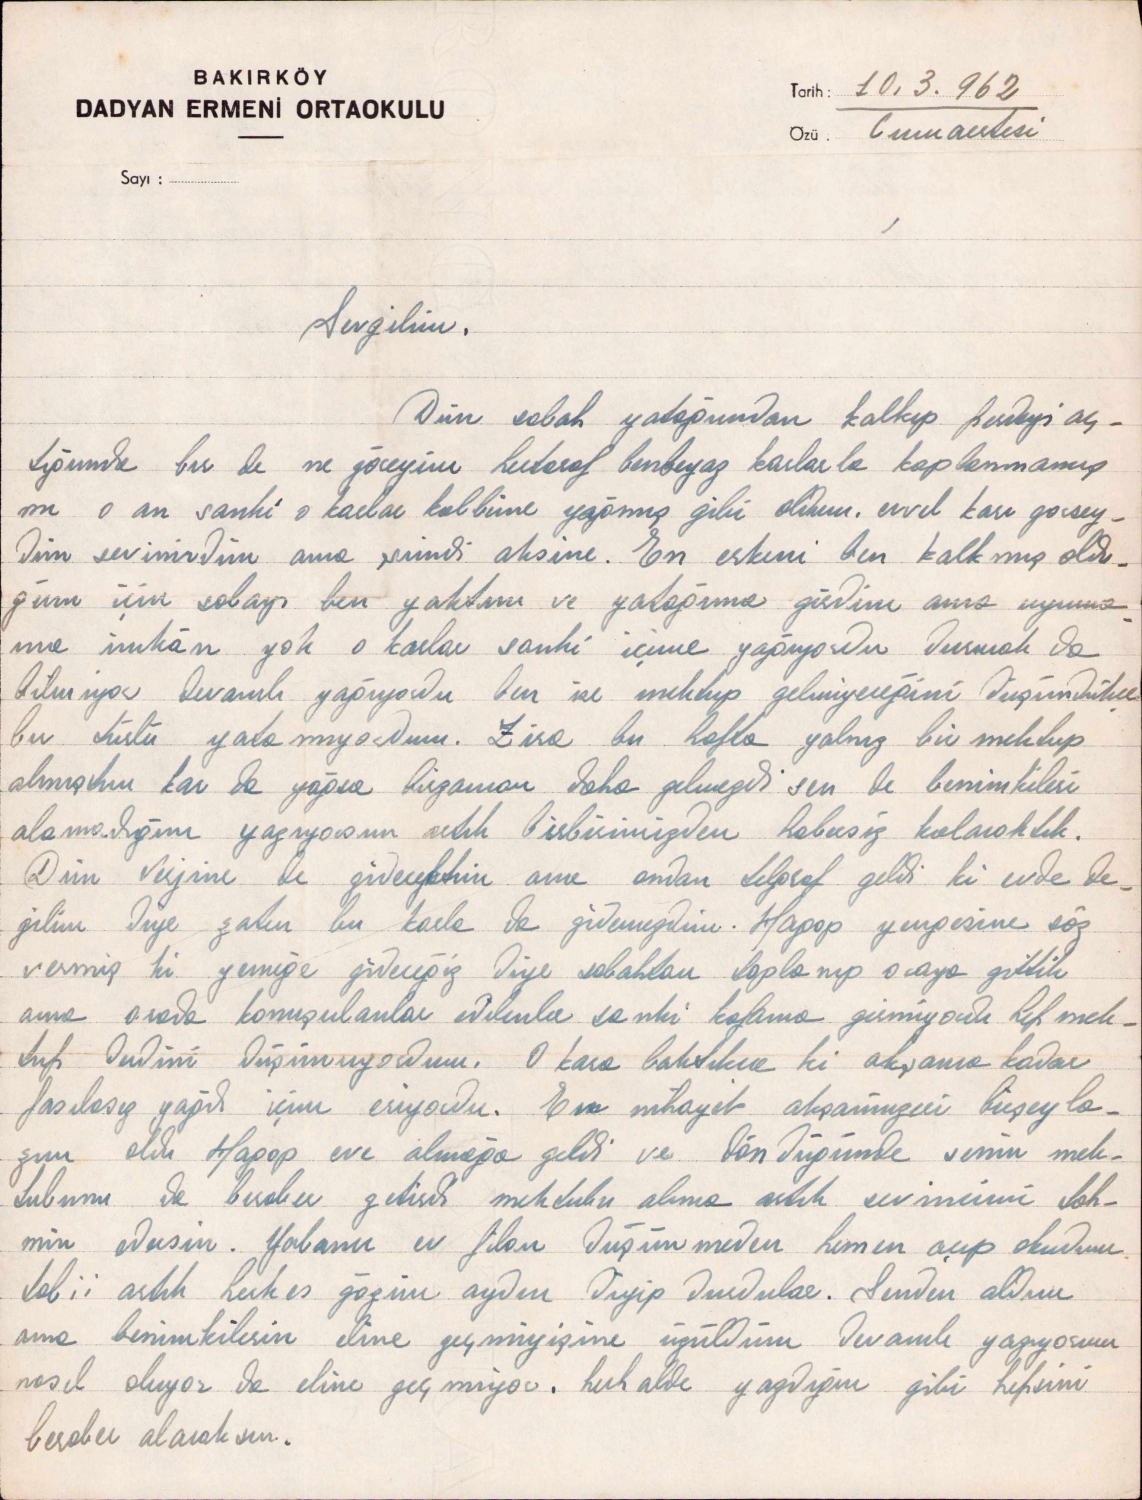 BAKIRKÖY
DADYAN ERMENİ ORTAOKULU
Tarih : 10. 3. 962
Özü . Cumaertesi
Sayı :
Sevgilim.
Dün sabah yatağımdan kalkıp perdeyi aç-
tığımda bir de ne göreyim hertaraf bembeyaz karlarla kaplanmamış
mı o an sanki o karlar kalbime yağmış gibi oldum. evvel karı görsey-
dim sevinirdim ama şimdi aksine. En erkeni ben kalkmış oldu-
ğum için sobayı ben yaktım ve yatağıma girdim ama uyuma-
ma imkân yok o karlar sanki içime yağıyordu durmak da
bilmiyor devamlı yağıyordu ben ise mektup gelmiyeceğini düşündükçe
bir türlü yatamıyordum. Zira bu hafta yalnız bir mektup
almıştım kar da yağsa birzaman daha gelmezdi sen de benimkileri
alamadığını yazıyorsun artık birbirimizden habersiz kalacaktık.
Dün Verjine de gidecektim ama ondan telgraf geldi ki evde de-
ğilim diye zaten bu karla da gidemezdim. Hagop yengesine söz
vermiş ki yemeğe gideceğiz diye sabahtan toplanıp oraya gittik
ama orada konuşulanlar edilenler sanki kafama girmiyordu hep mek-
tup derdini düşünüyordum. O kara baktıkca ki akşama kadar
fasılasız yağdı içim eriyordu. En nihayet akşamüzeri birşey la-
zım oldu Hagop eve almağa geldi ve döndüğünde senin mek-
tubunu da beraber getirdi mektubu alınca artık sevincimi tah-
min edersin. Yabancı ev filan düşünmeden hemen açıp okudum
tabii artık herkes gözün aydın diyip durdular. Senden aldım
ama benimkilerin eline geçmiyişine üzüldüm devamlı yazıyorum
nasıl oluyor da eline geçmiyor. herhalde yazdığın gibi hepsini
beraber alacaksın.